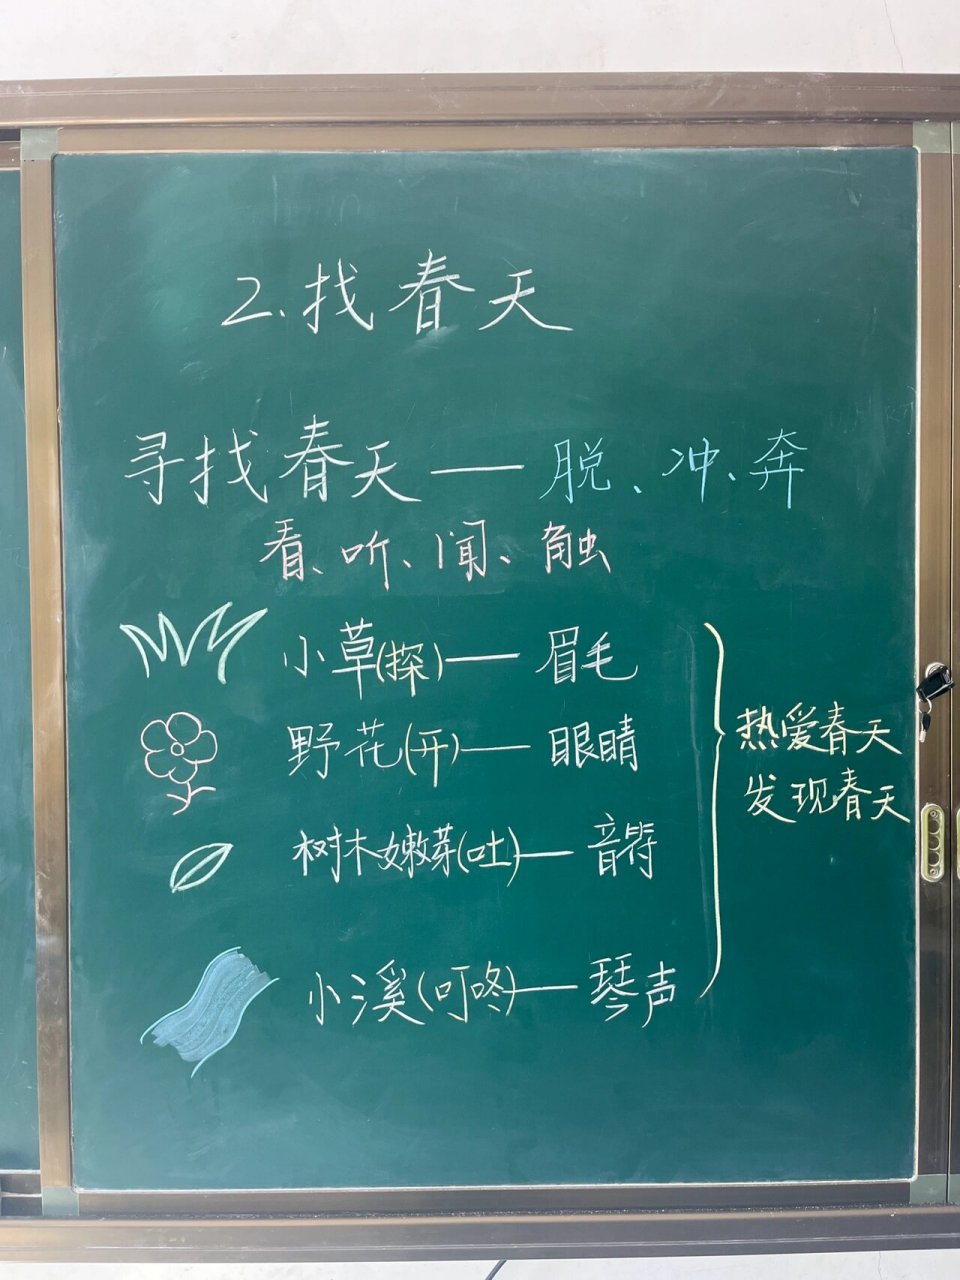 2.找春天
寻找春天——脱、冲、奔
看、听、闻、触
小草(探)——眉毛
野花(开)——眼睛
树木嫩芽(吐)——音符
小溪(叮咚)——琴声
热爱春天
发现春天